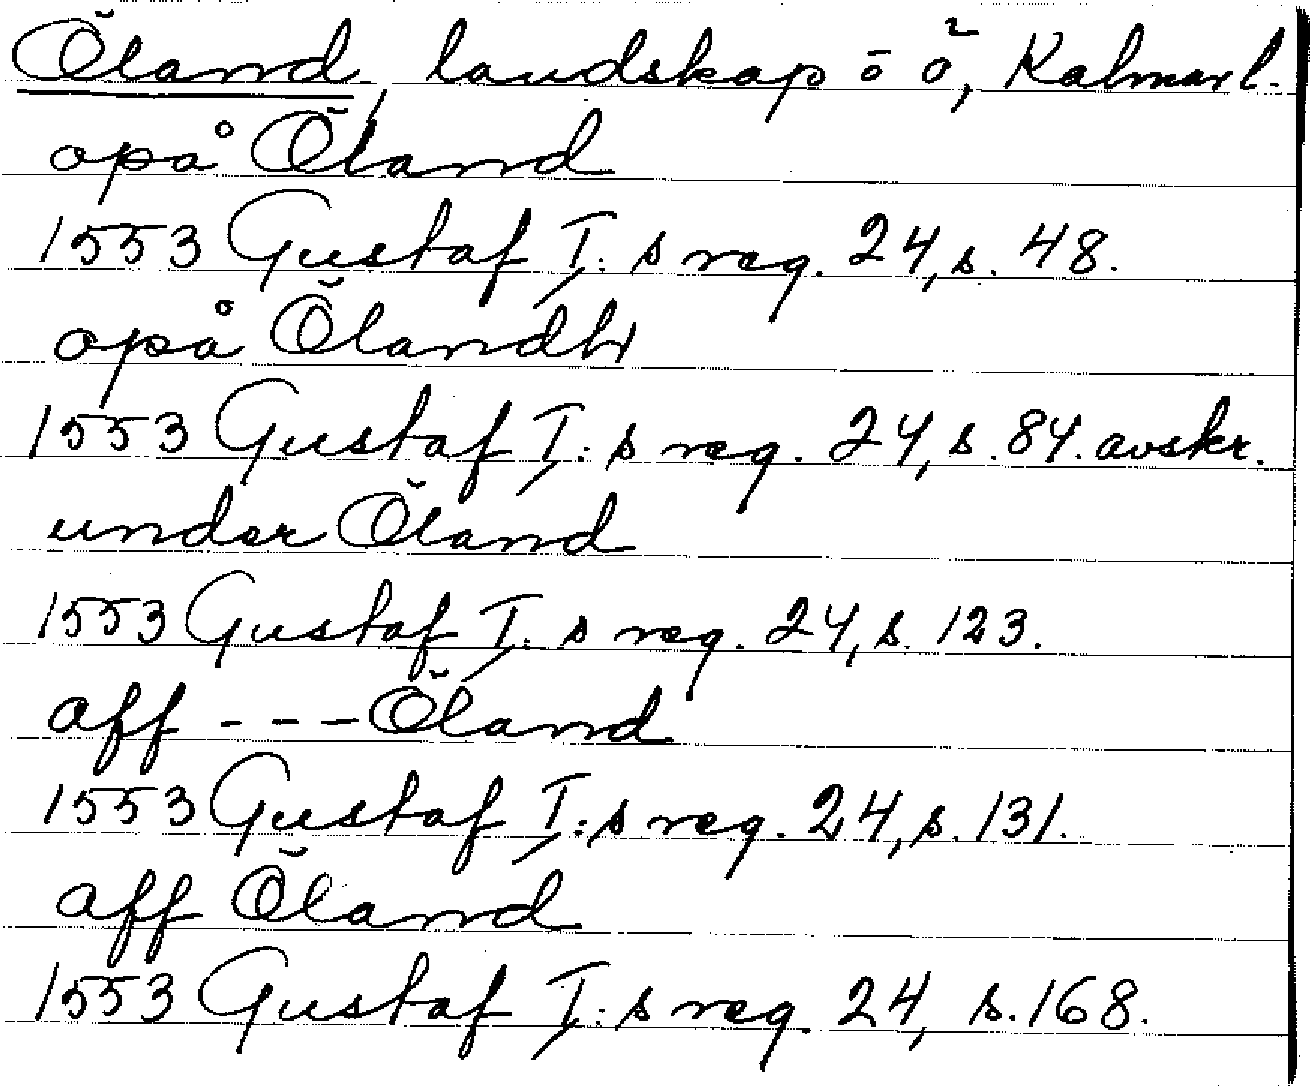 Öland, landskap o ö, Kalmar l.
opå Öland
1553 Gustaf I:s reg. 24, s. 48.
opå Ölandh
1553 Gustaf I:s reg. 24, s. 84. avskr.
under Öland
1553 Gustaf I:s reg. 24, s. 123.
aff --- Öland
1553 Gustaf I:s reg. 24, s. 131.
aff Öland
1553 Gustaf I:s reg. 24, s. 168.